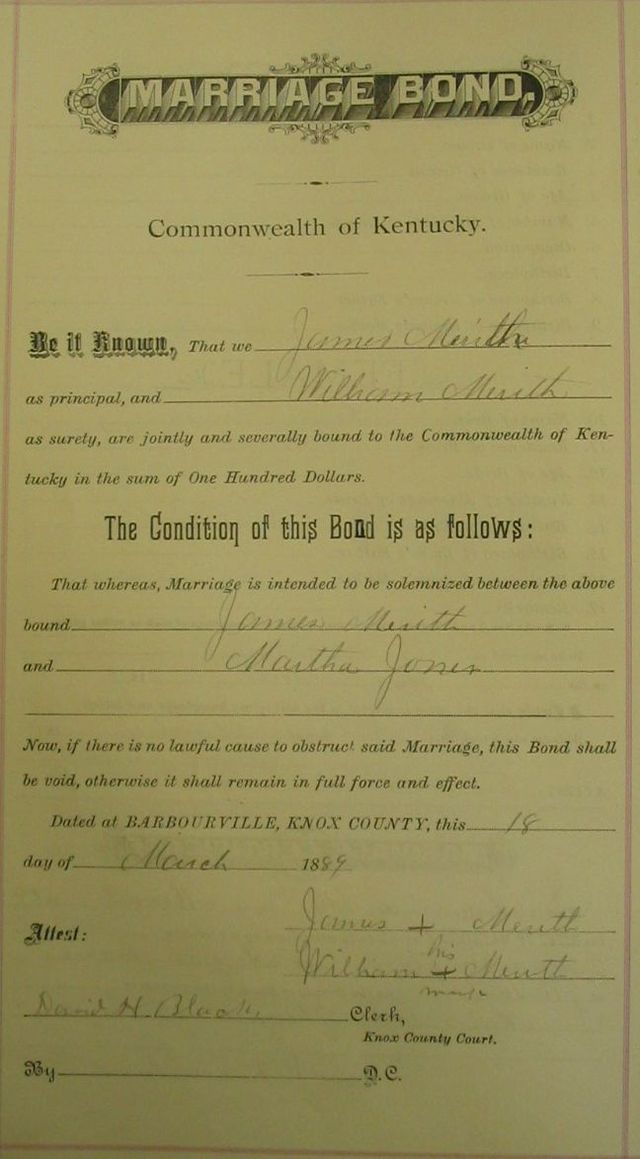 MARRIAGE BOND.
Commonwealth of Kentucky.
Be it Known, That we James Merith
as principal, and William Merith
as surety, are jointly and severally bound to the Commonwealth of Ken-
tucky in the sum of One Hundred Dollars.
The Condition of this Bond is as follows:
That whereas, Marriage is intended to be solemnized between the above
bound James Merith
and Martha Jones
Now, if there is no lawful cause to obstruct said Marriage, this Bond shall
be void, otherwise it shall remain in full force and effect.
Dated at BARBOURVILLE, KNOX COUNTY, this 18
day of March 1889
Attest: James + Merith
his
William + Merith
mark
David H. Black Clerk,
Knox County Court.
By D.C.